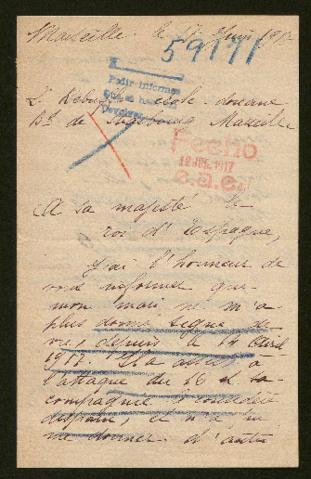 Marseille le 17 Juin 1917
59171
Pedir informes
Devolver
école
Bd de Strasbourg Marseille
Fecho
12 JUL. 1917
c.a.c.
A sa majesté le
roi d'Espagne,
J'ai l'honneur de
vous informer que
mon mari ne m'a
plus donné signe de
vie, depuis le 14 Avril
1917. Il a assisté à
l'attaque du 16 et la
compagnie
disparu, et n'a pu
me donner d'autre